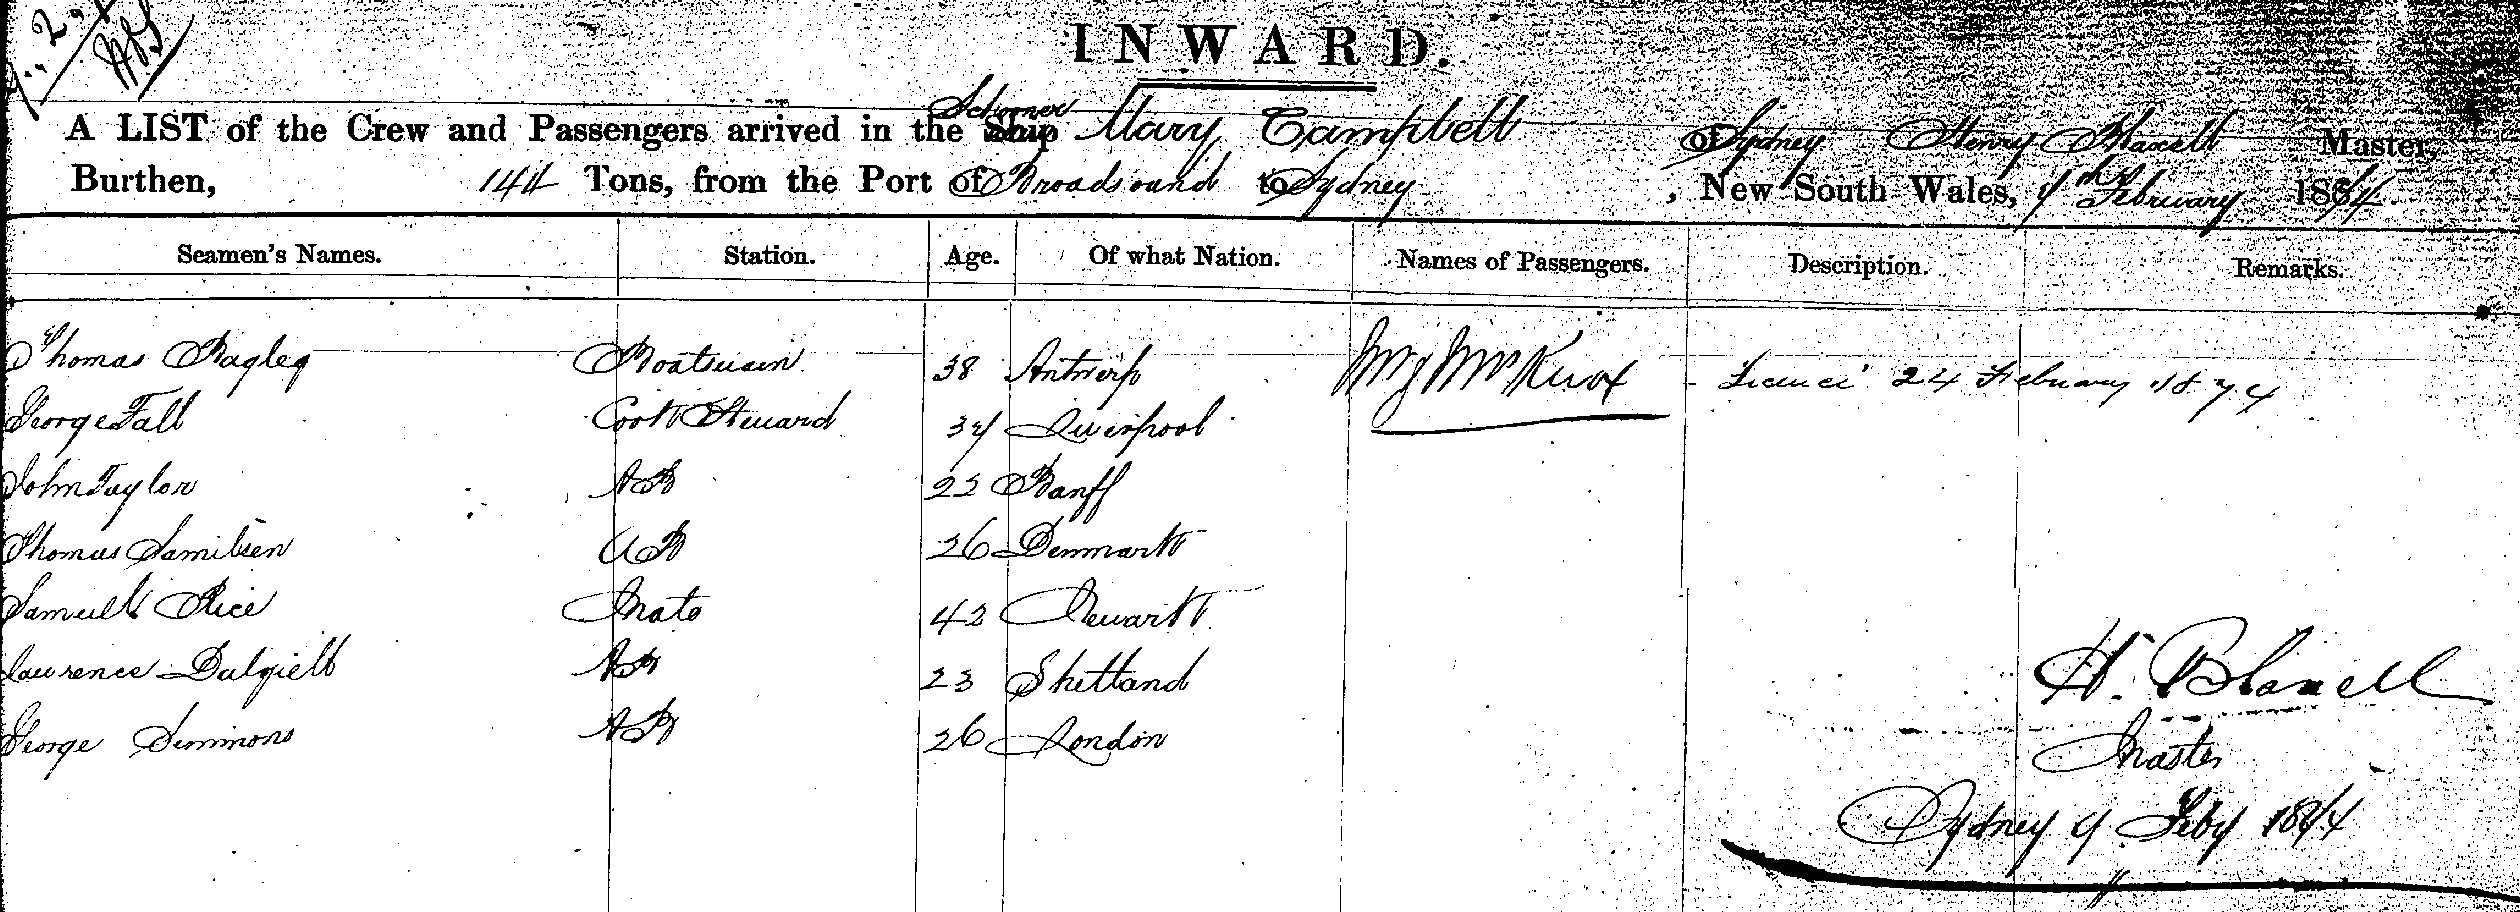 INWARD.
Schooner
A LIST of the Crew and Passengers arrived in the Ship Mary Campbell of Sydney Henry Blaxell Master,
Burthen, 144 Tons, from the Port of Broadsound to Sydney, New South Wales, 9th February 1874.
Seamen's Names. Station. Age. Of what Nation. Names of Passengers. Description. Remarks.
Thomas Bagley Boatswain 38 Antwerp
George Fall Cook Steward 39 Liverpool
John Taylor AB 22 Banff
Thomas AB 26 Denmark
Samuell Rice Mate 42 Newark
Lawrence Dalziell AB 23 Shetland
George Simmons AB 26 London
24 February 1874
H. Blaxell
Master
Sydney 9 Feby 1874